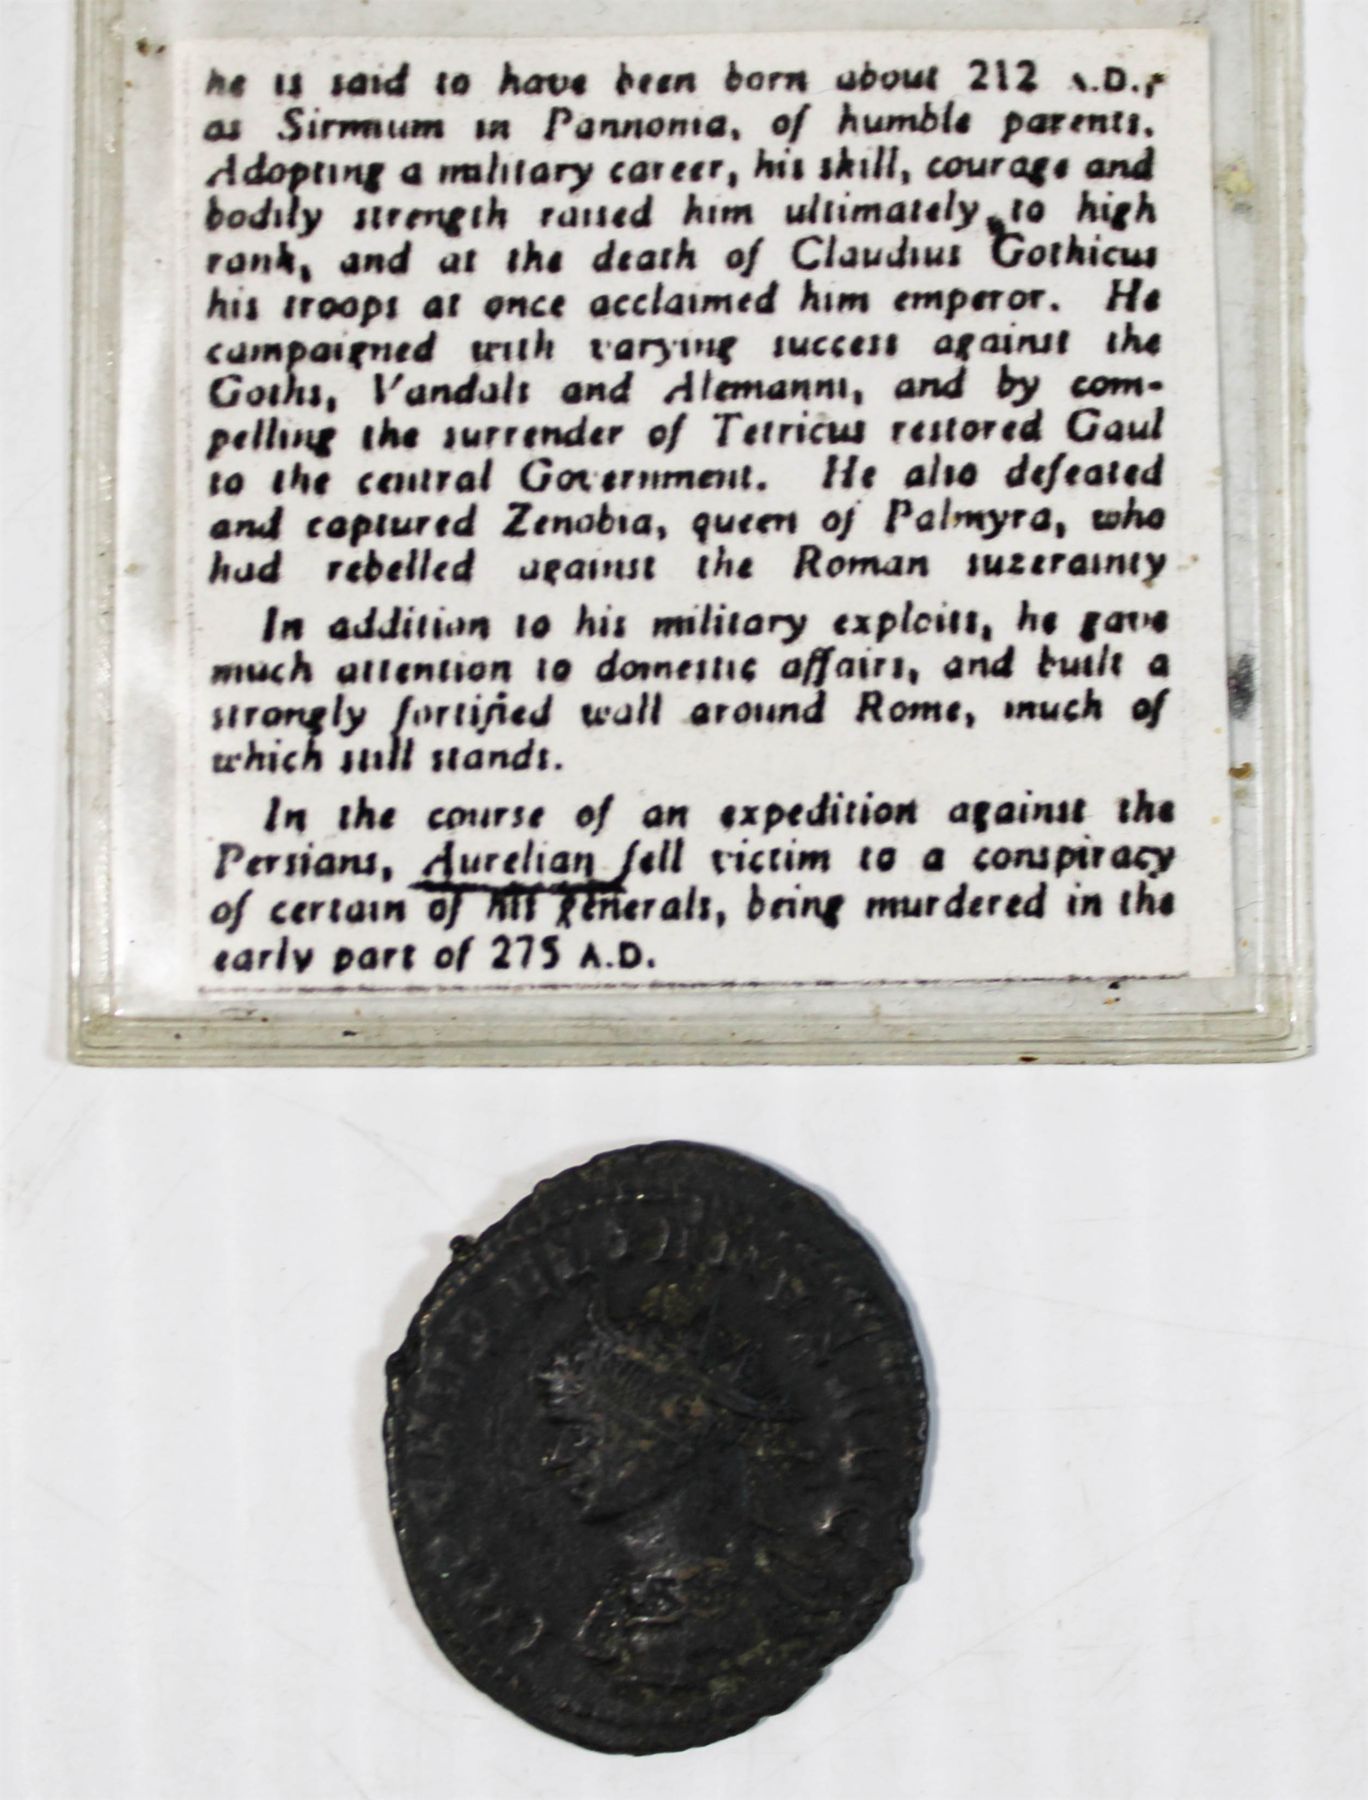 he is said to have been born about 212 A.D.,
as Sirmium in Pannonia, of humble parents.
Adopting a military career, his skill, courage and
bodily strength raised him ultimately to high
rank, and at the death of Claudius Gothicus
his troops at once acclaimed him emperor. He
campaigned with varying success against the
Goths, Vandals and Alemanni, and by com-
pelling the surrender of Tetricus restored Gaul
to the central Government. He also defeated
and captured Zenobia, queen of Palmyra, who
had rebelled against the Roman suzerainty
In addition to his military exploits, he gave
much attention to domestic affairs, and built a
strongly fortified wall around Rome, much of
which still stands.
In the course of an expedition against the
Persians, Aurelian fell victim to a conspiracy
of certain of his generals, being murdered in the
early part of 275 A.D.